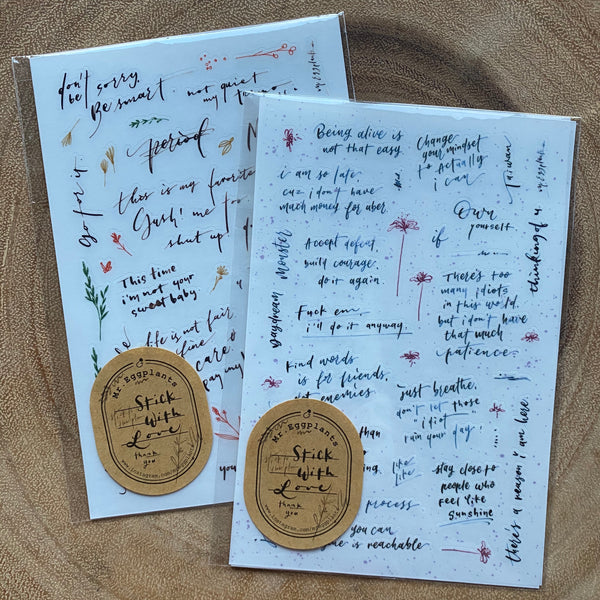 don't
be sorry.
Be smart.
not quiet
my
period
go for it.
this is my favorite
Gush! me to
shut up
This time
i'm not your
sweet baby
life is not fair
fine
care
pay my
you
Mr. Eggplants
Stick
With
Love
thank
you
Being alive is
not that easy
Change
your mindset
to actually
i can
Taiwan
i am so late
cuz i don't have
much money for uber.
Own
yourself
if
thinking of u.
Monster
Daydream
Accept defeat,
build courage
do it again.
There's too
many idiots
in this world.
but i don't have
that much
patience.
Fuck em
i'll do it anyway.
Kind words
is for friends,
not enemies
just breathe.
don't let those
"idiot"
ruin your day.
than
like
like
stay close to
people who
feel like
sunshine
there's a reason i am here.
process
you can
is reachable
Mr. Eggplants
Stick
With
Love
thank
you